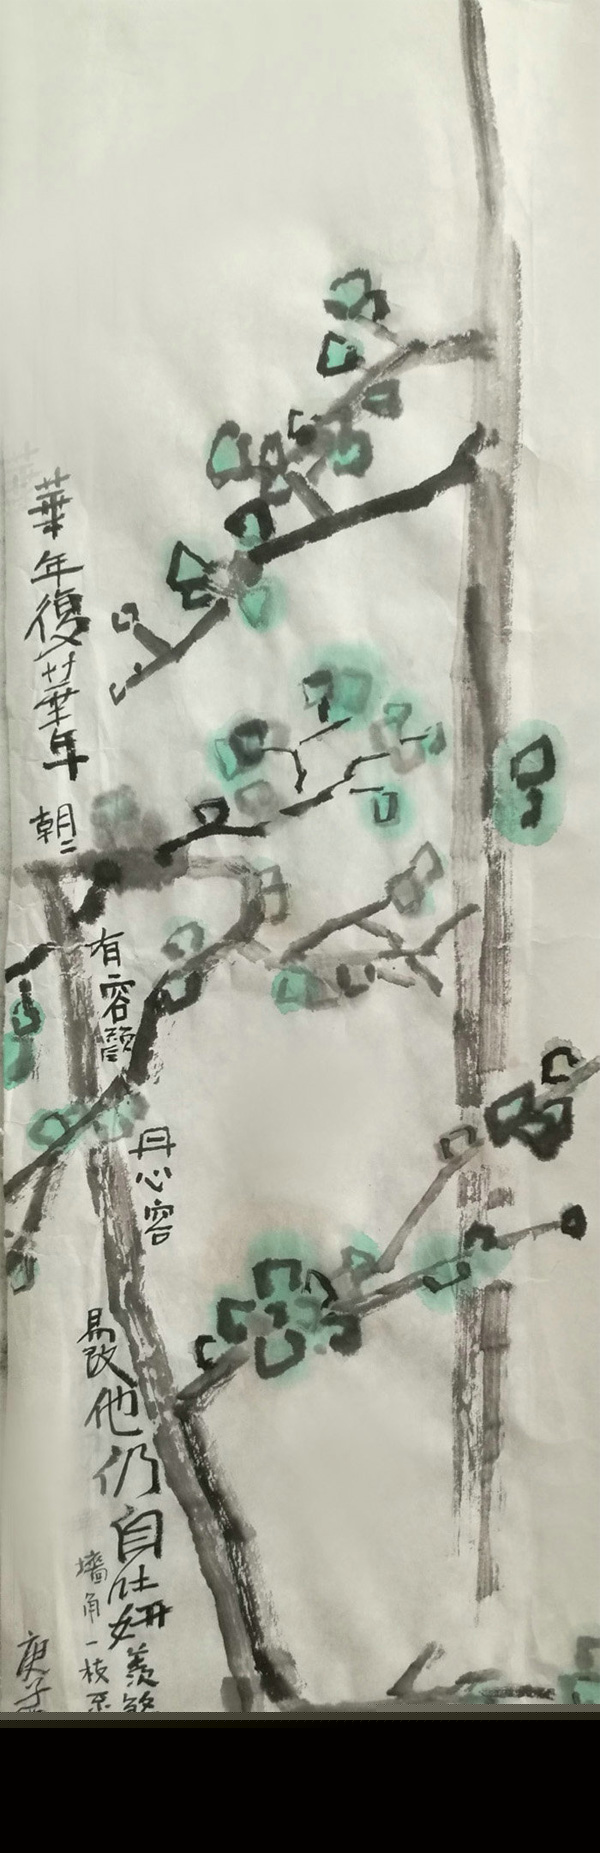 華年復華年
朝〻有容顏
丹心容易改
他仍自仕妍
羨
墻角一枝
庚子